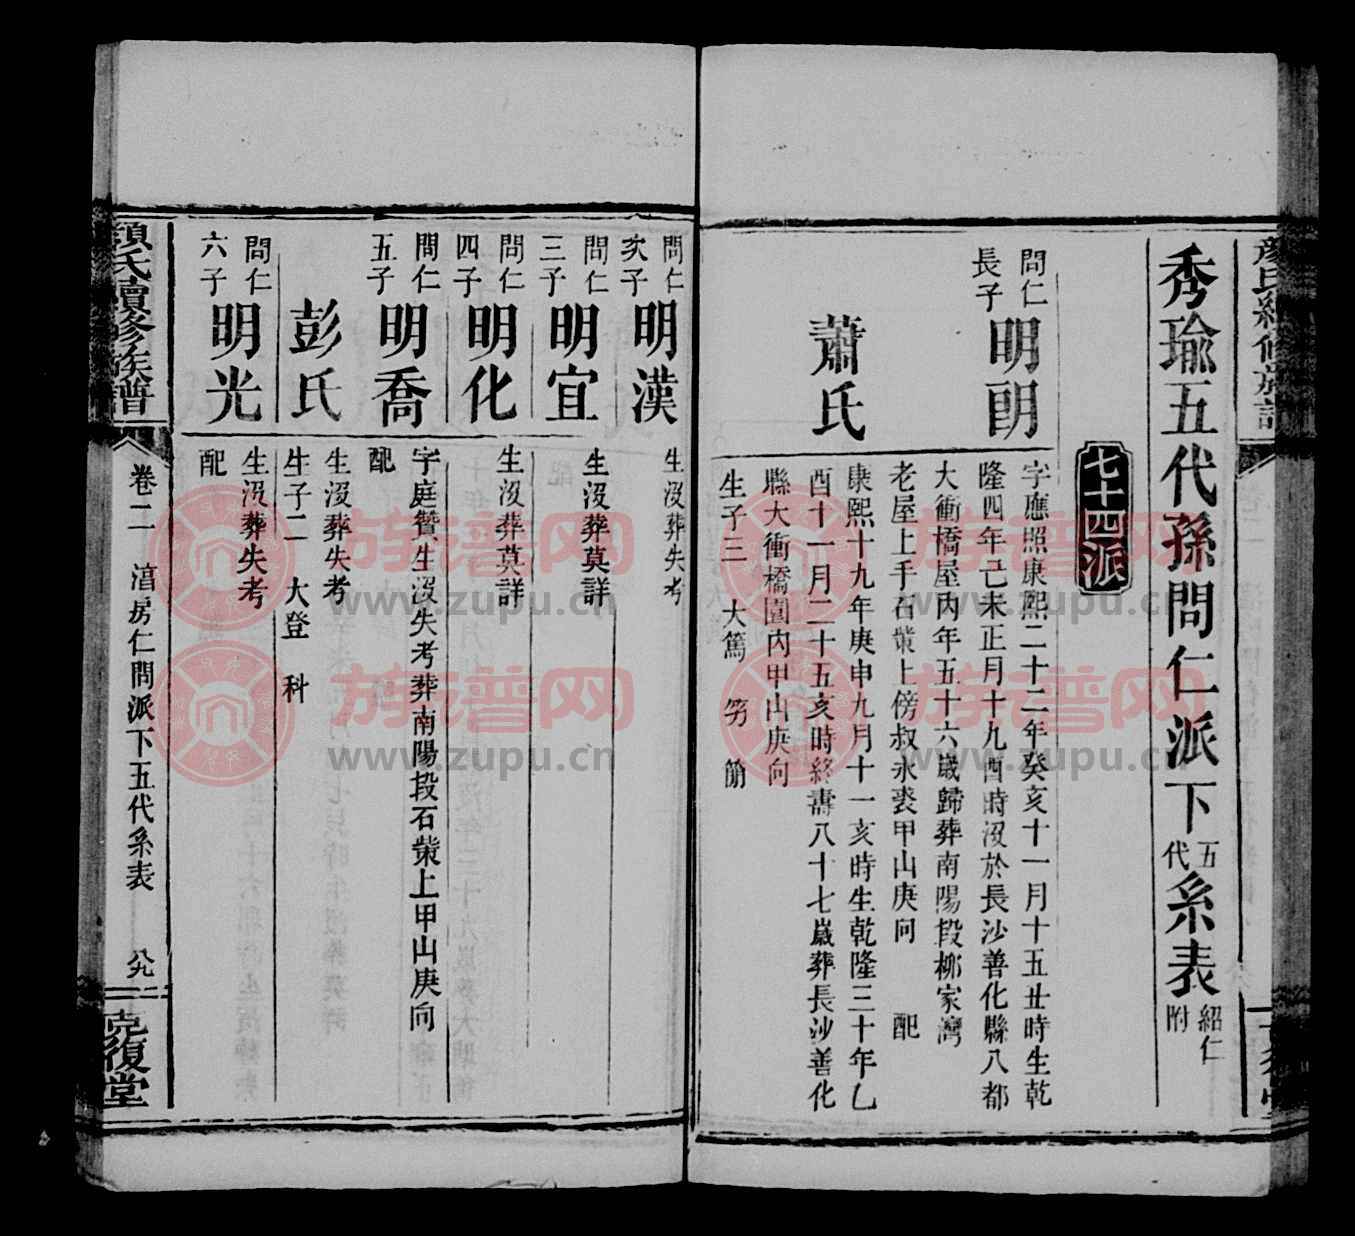 秀瑜五代孫問仁派下五代系表紹仁附
七十四派
問仁長子
明朗
字應照康熙二十二年癸亥十一月十五丑時生乾
隆四年己未正月十九酉時沒於長沙善化縣八都
大衝橋屋內年五十六歲歸葬南陽段柳家灣
老屋上手石柴上傍叔永裘甲山庚向 配
蕭氏
康熙十九年庚申九月十一亥時生乾隆三十年乙
酉十一月二十五亥時終壽八十七歲葬長沙善化
縣大衝橋園內甲山庚向
生子三 大篤 竻 萠
問仁次子
明漢
生沒葬失考
問仁三子
明宜
生沒葬莫詳
問仁四子
明化
生沒葬莫詳
問仁五子
明喬
字庭贊生沒失考葬南陽段石柴上甲山庚向
配
彭氏
生沒葬失考
生子二 大登 科
問仁六子
明光
生沒葬失考
配
顏氏續修族譜
卷二
淯房仁問派下五代系表
八九
克復堂
族谱网
www.zupu.cn
族谱网
www.zupu.cn
族谱网
www.zupu.cn
族谱网
www.zupu.cn